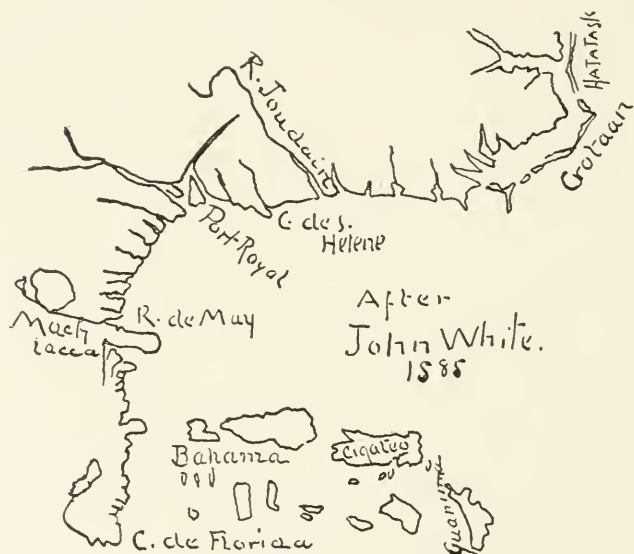 HATATASK
Crotaan
R. Joudain
C. de S.
Helene
Port Royal
R. de May
Mach
iacca
After
John White.
1585
Bahama
Cigateo
Guanima
C. de Florida